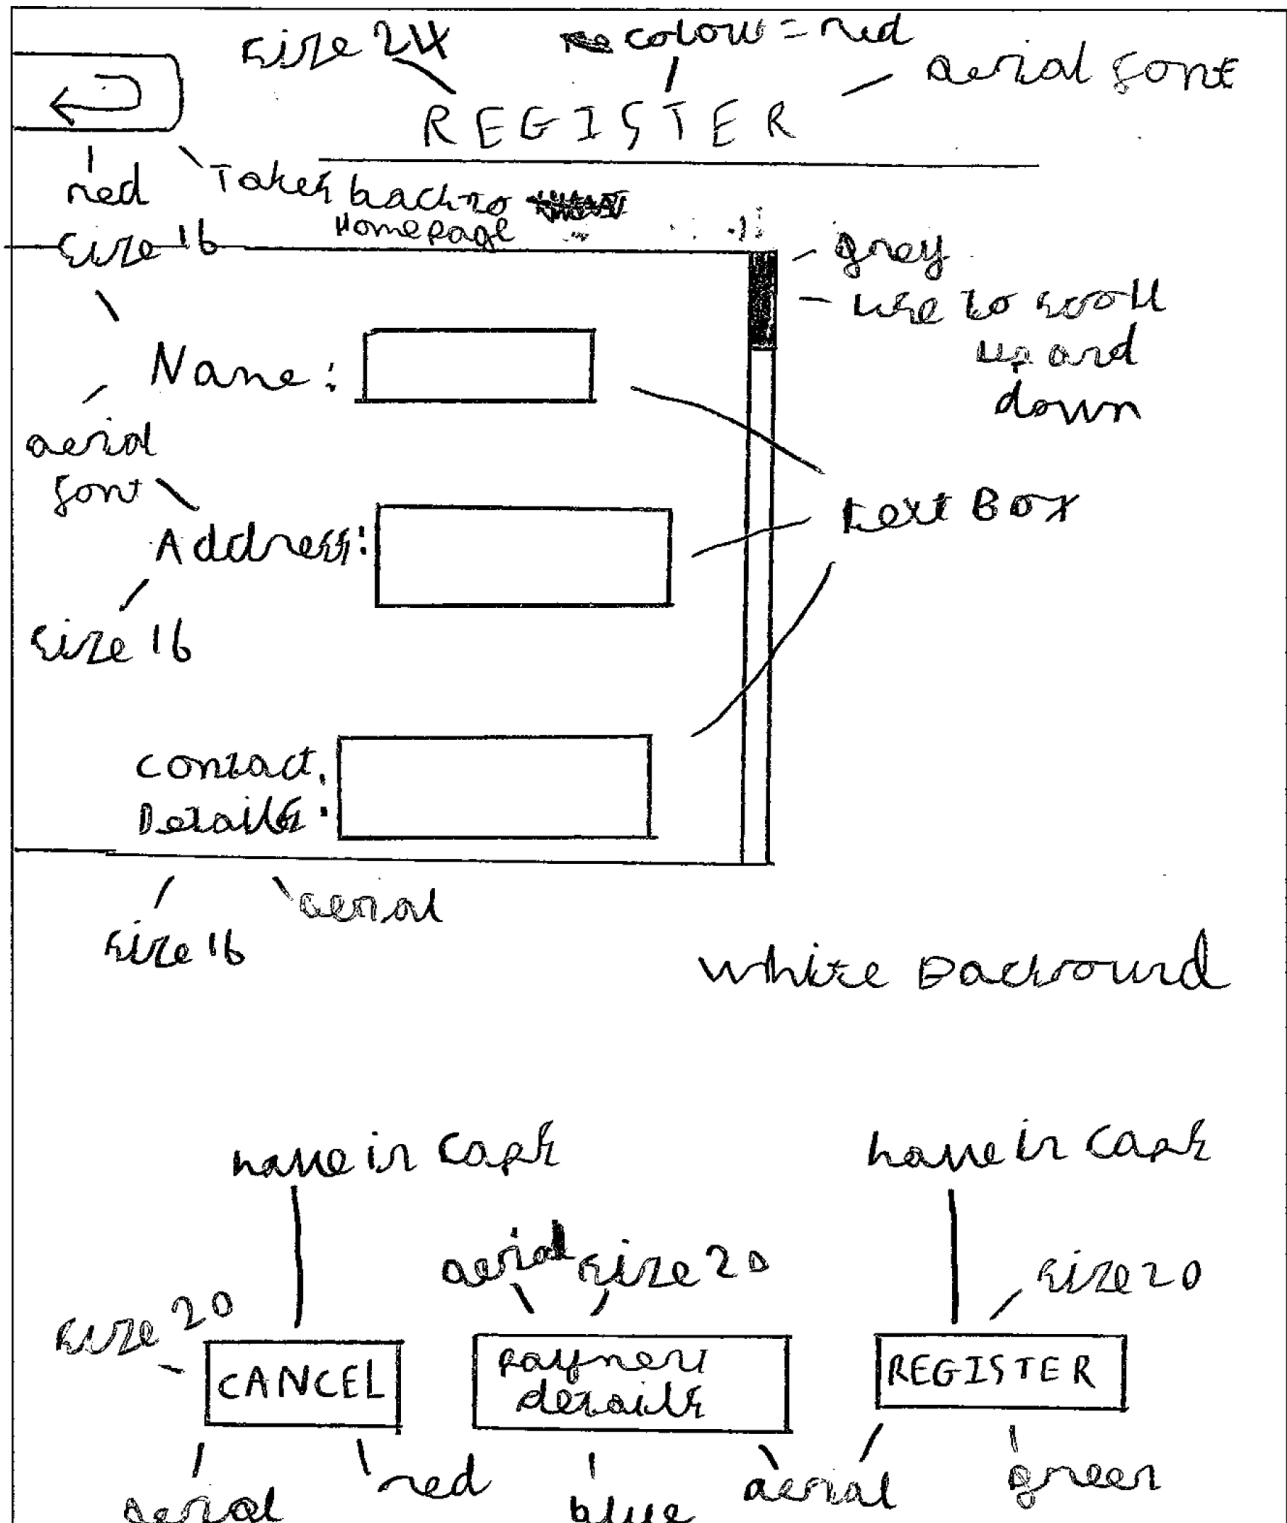 size 24
colour = red
aerial font
REGISTER
red
Takes back to
Homepage
size 16
grey
use to scroll
up and
down
Name:
aerial
font
text Box
Address:
size 16
contact
Details:
size 16
aerial
white Backround
name in Caps
name in Caps
aerial
size 20
size 20
size 20
CANCEL
payment
details
REGISTER
aerial
red
blue
aerial
green